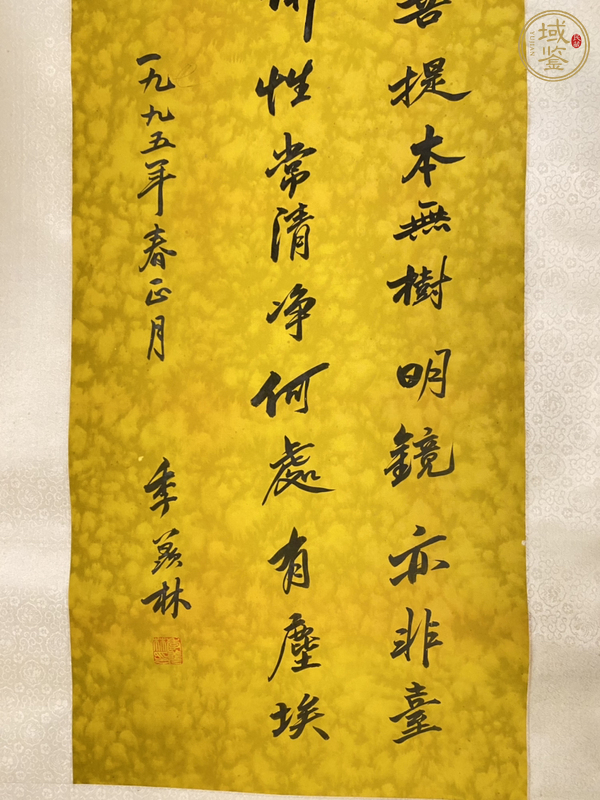 菩提本無樹明鏡亦非臺
性常清净何處有塵埃
一九九五年春正月
季羡林
域鉴
YUJIAN